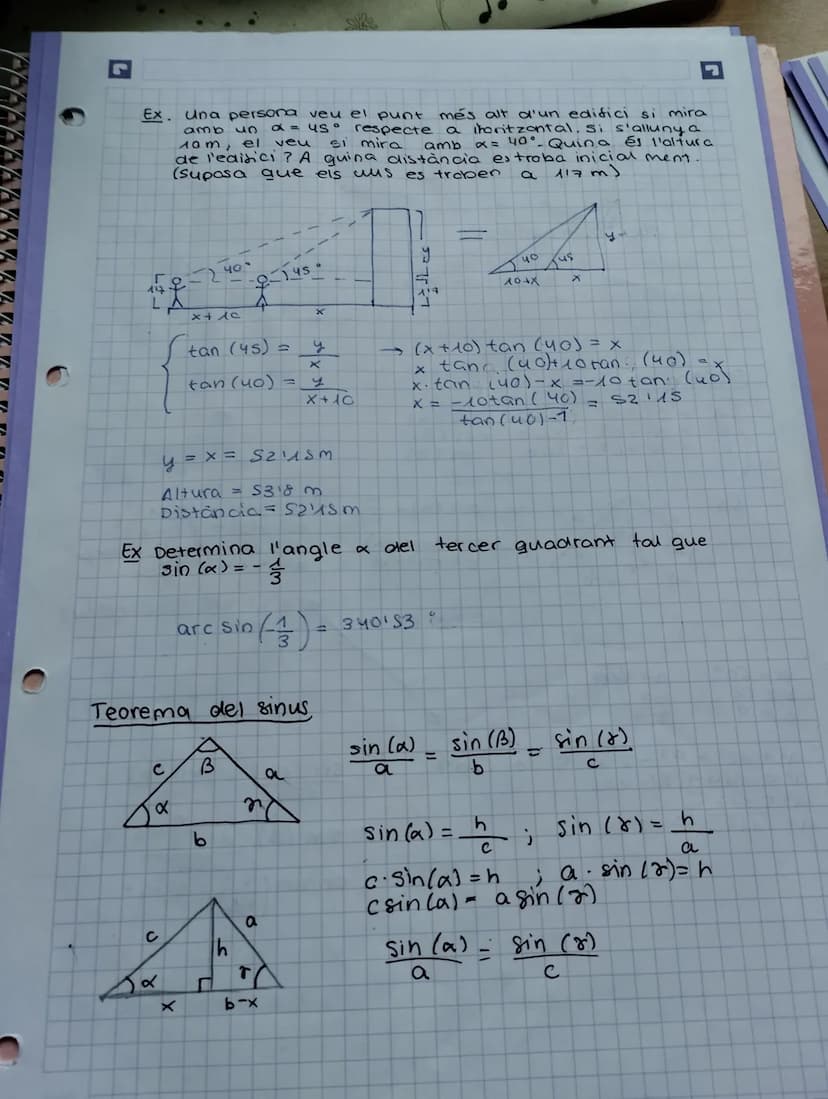 Ex. Una persona veu el punt més alt d'un edifici si mira
amb un α = 45° respecte a horitzontal. Si s'allunya
10m, el veu si mira amb α = 40°. Quina És l'altura
de l'edifici? A quina distància es troba inicial ment.
(Suposa que els ulls es troben a 1'7 m)
40°
45°
1'7
x + 10
x
y
1'7
=
40
45
y
10+x
x
tan (45) = y/x
tan (40) = y/(x+10)
→ (x+10) tan (40) = x
x tan (40)+10 tan (40) = x
x·tan (40) - x = -10 tan (40)
x = -10tan(40)/(tan(40)-1) = 52'15
y = x = 52'15m
Altura = 53'8 m
Distància = 52'15m
Ex Determina l'angle α del tercer quadrant tal que
sin (α) = - 1/3
arc sin (-1/3) = 340'53°
Teorema del sinus
c
β
a
α
γ
b
sin(α)/a = sin(β)/b = sin(γ)/c
sin(α) = h/c ; sin(γ) = h/a
c·sin(α) = h ; a·sin(γ) = h
c sin(α) = a sin(γ)
sin(α)/a = sin(γ)/c
c
a
h
α
γ
x
b-x